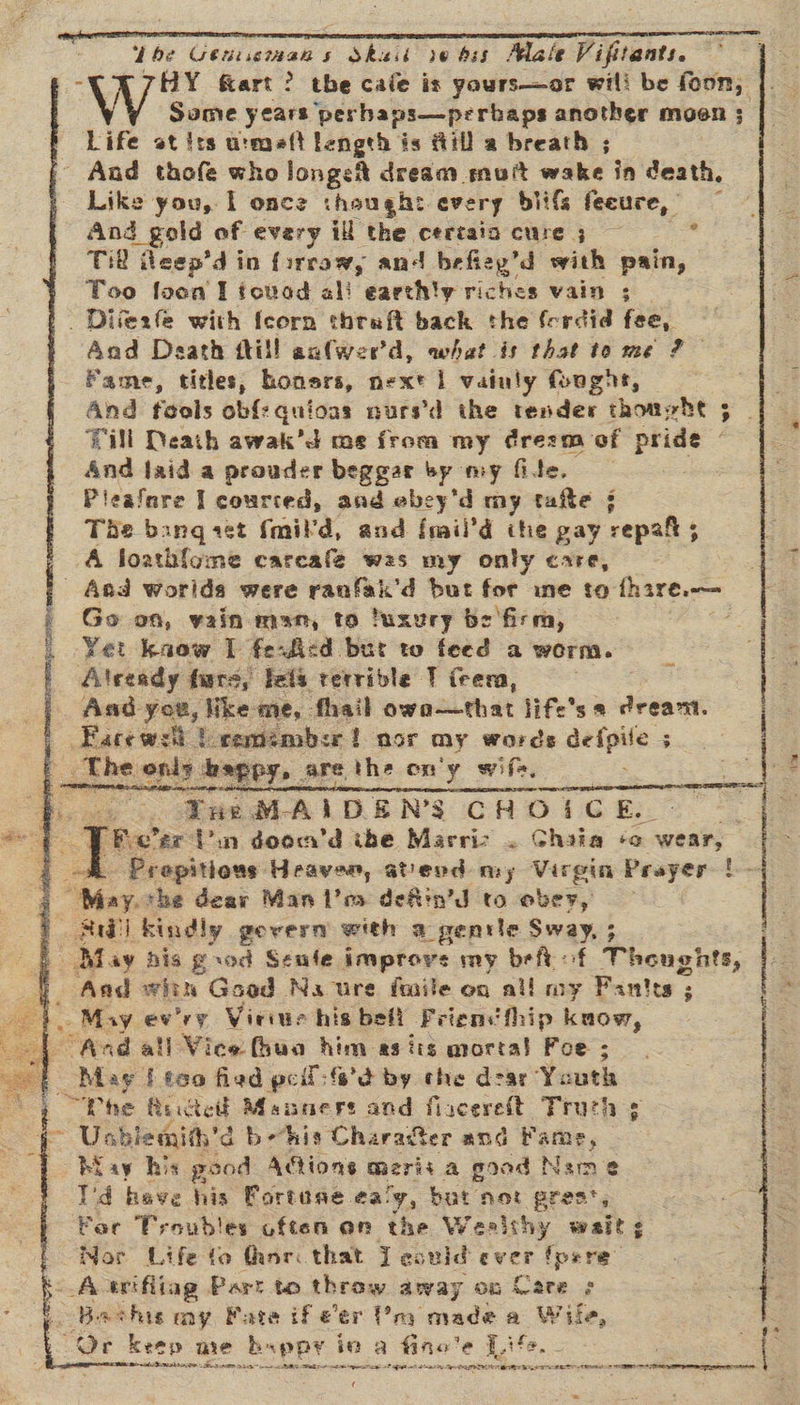 The Gentleman s Skull to his Male Viſitants.
WHY ſtart ? the caſe is yours—or will be ſoon,
Some years perhaps—perhaps another moon ;
Life at its utmoſt length is ſtill a breath ;
And thoſe who longeſt dream muſt wake in death.
Like you, I once thought every bliſs ſecure,
And gold of every ill the certain cure ;
Till ſteep'd in ſorrow, and beſieg'd with pain,
Too ſoon I found all earthly riches vain ;
Diſeaſe with ſcorn thruſt back the ſordid fee,
And Death ſtill anſwer'd, what is that to me ?
Fame, titles, honors, next I vainly ſought,
And fools obſequious nurs'd the tender thought ;
Till Death awak'd me from my dream of pride
And laid a prouder beggar by my ſide.
Pleaſure I courted, and obey'd my taſte ;
The banquet ſmil'd, and ſmil'd the gay repaſt ;
A loathſome carcaſe was my only care,
And worlds were ranſak'd but for me to ſhare.—
Go on, vain man, to luxury be firm,
Yet know I feaſted but to feed a worm.
Already ſure, leſs terrible I ſeem,
And you, like me, ſhall own—that life's a dream.
Farewell ! remember ! nor my words deſpiſe ;
The only happy, are the on'y wiſe.
THE MAIDEN'S CHOICE.
IF e'er I'm doom'd the Marri- Chain to wear,
Propitious Heaven, attend my Virgin Prayer !
May the dear Man I'm deſtin'd to obey,
Still kindly govern with a gentle Sway, ;
May his good Senſe improve my beſt of Thoughts,
And with Good Na ure ſmile on all my Faults ;
May ev'ry Virtue his beſt Friendſhip know,
And all Vice ſhun him as its mortal Foe ;
May I too find poſſeſs'd by the dear Youth
The ſtricteſt Manners and ſincereſt Truth ;
Unblemiſh'd be his Character and Fame,
May his good Actions merit a good Name
I'd have his Fortune eaſy, but not great,
For Troubles often on the Wealthy wait ;
Nor Life ſo ſhort that I could ever ſpare
A trifling Part to throw away on Care ;
Be this my Fate if e'er I'm made a Wife,
Or keep me happy in a ſingle Life.